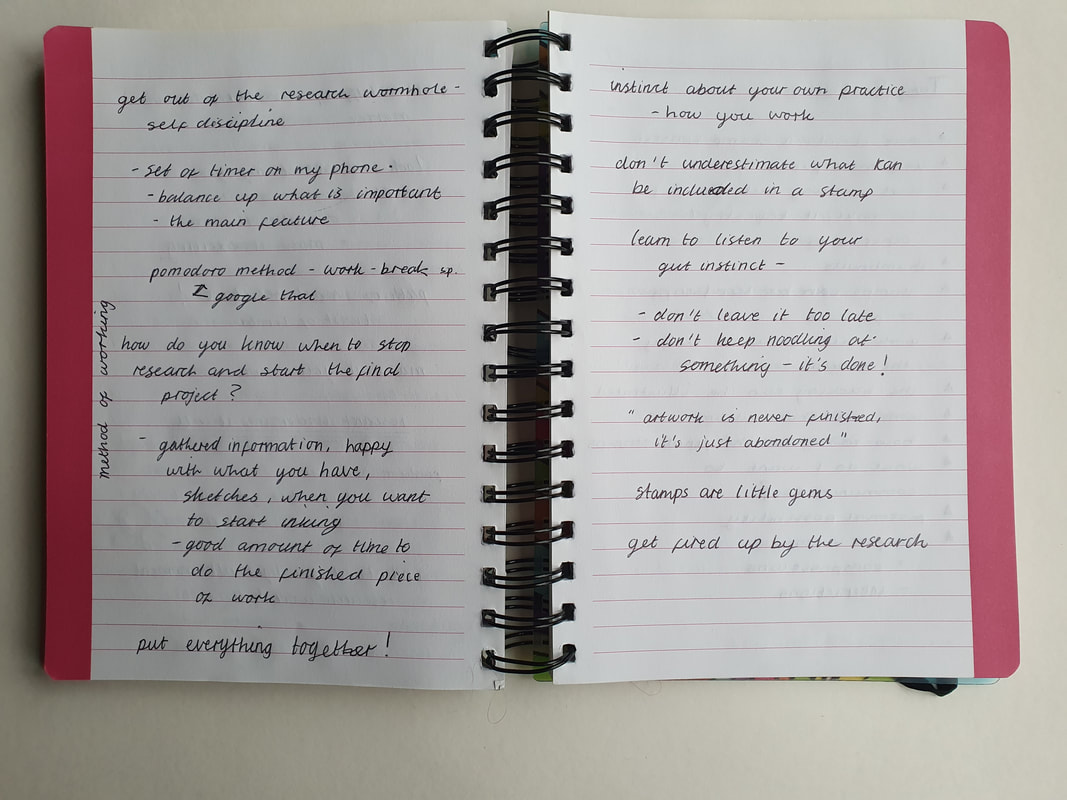 get out of the research wormhole -
self discipline
- set of timer on my phone.
- balance up what is important
- the main feature
pomodoro method - work - break sp.
google that
how do you know when to stop
research and start the final
project ?
- gathered information, happy
with what you have,
sketches, when you want
to start inking
- good amount of time to
do the finished piece
of work
put everything together!
method of working
instinct about your own practice
- how you work
don't underestimate what kan
be included in a stamp
learn to listen to your
gut instinct -
- don't leave it too late
- don't keep noodling at
something - it's done!
" artwork is never finished,
it's just abandoned "
stamps are little gems
get fired up by the research